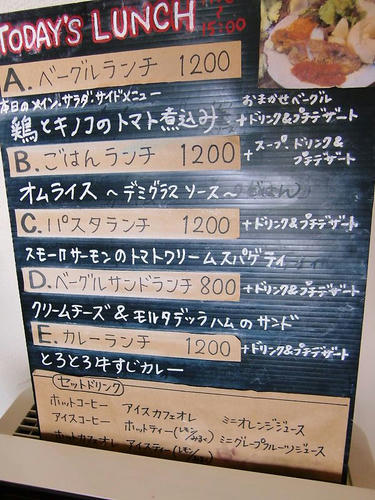 TODAY'S LUNCH
15:00
A. ベーグルランチ 1200
本日のメイン、サラダ、サイドメニュー
おまかせベーグル
鶏とキノコのトマト煮込み
+ドリンク&プチデザート
B. ごはんランチ 1200
+スープ、ドリンク&プチデザート
オムライス 〜デミグラスソース〜
C. パスタランチ 1200 +ドリンク&プチデザート
スモークサーモンのトマトクリームスパゲティ
D. ベーグルサンドランチ 800 +ドリンク&プチデザート
クリームチーズ&モルタデッラハムのサンド
E. カレーランチ 1200 +ドリンク&プチデザート
とろとろ牛すじカレー
セットドリンク
ホットコーヒー アイスカフェオレ ミニオレンジジュース
アイスコーヒー ホットティー(レモン/みるく) ミニグレープフルーツジュース
ホットカフェオレ アイスティー(レモン/みるく)